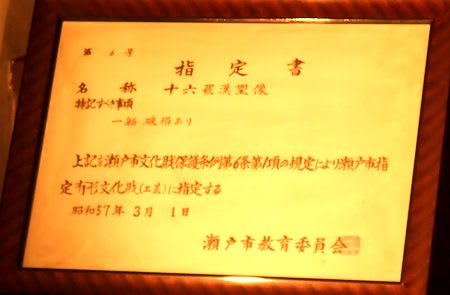 第 6 号
指定書
名称 十六羅漢塑像
特記すべき事項
一部破損あり
上記を瀬戸市文化財保護条例第6条第1項の規定により瀬戸市指
定有形文化財(工芸)に指定する
昭和57年3月1日
瀬戸市教育委員会